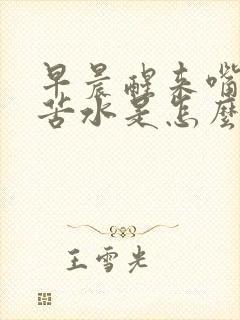 早晨醒来嘴
苦水是怎麼
王雪光